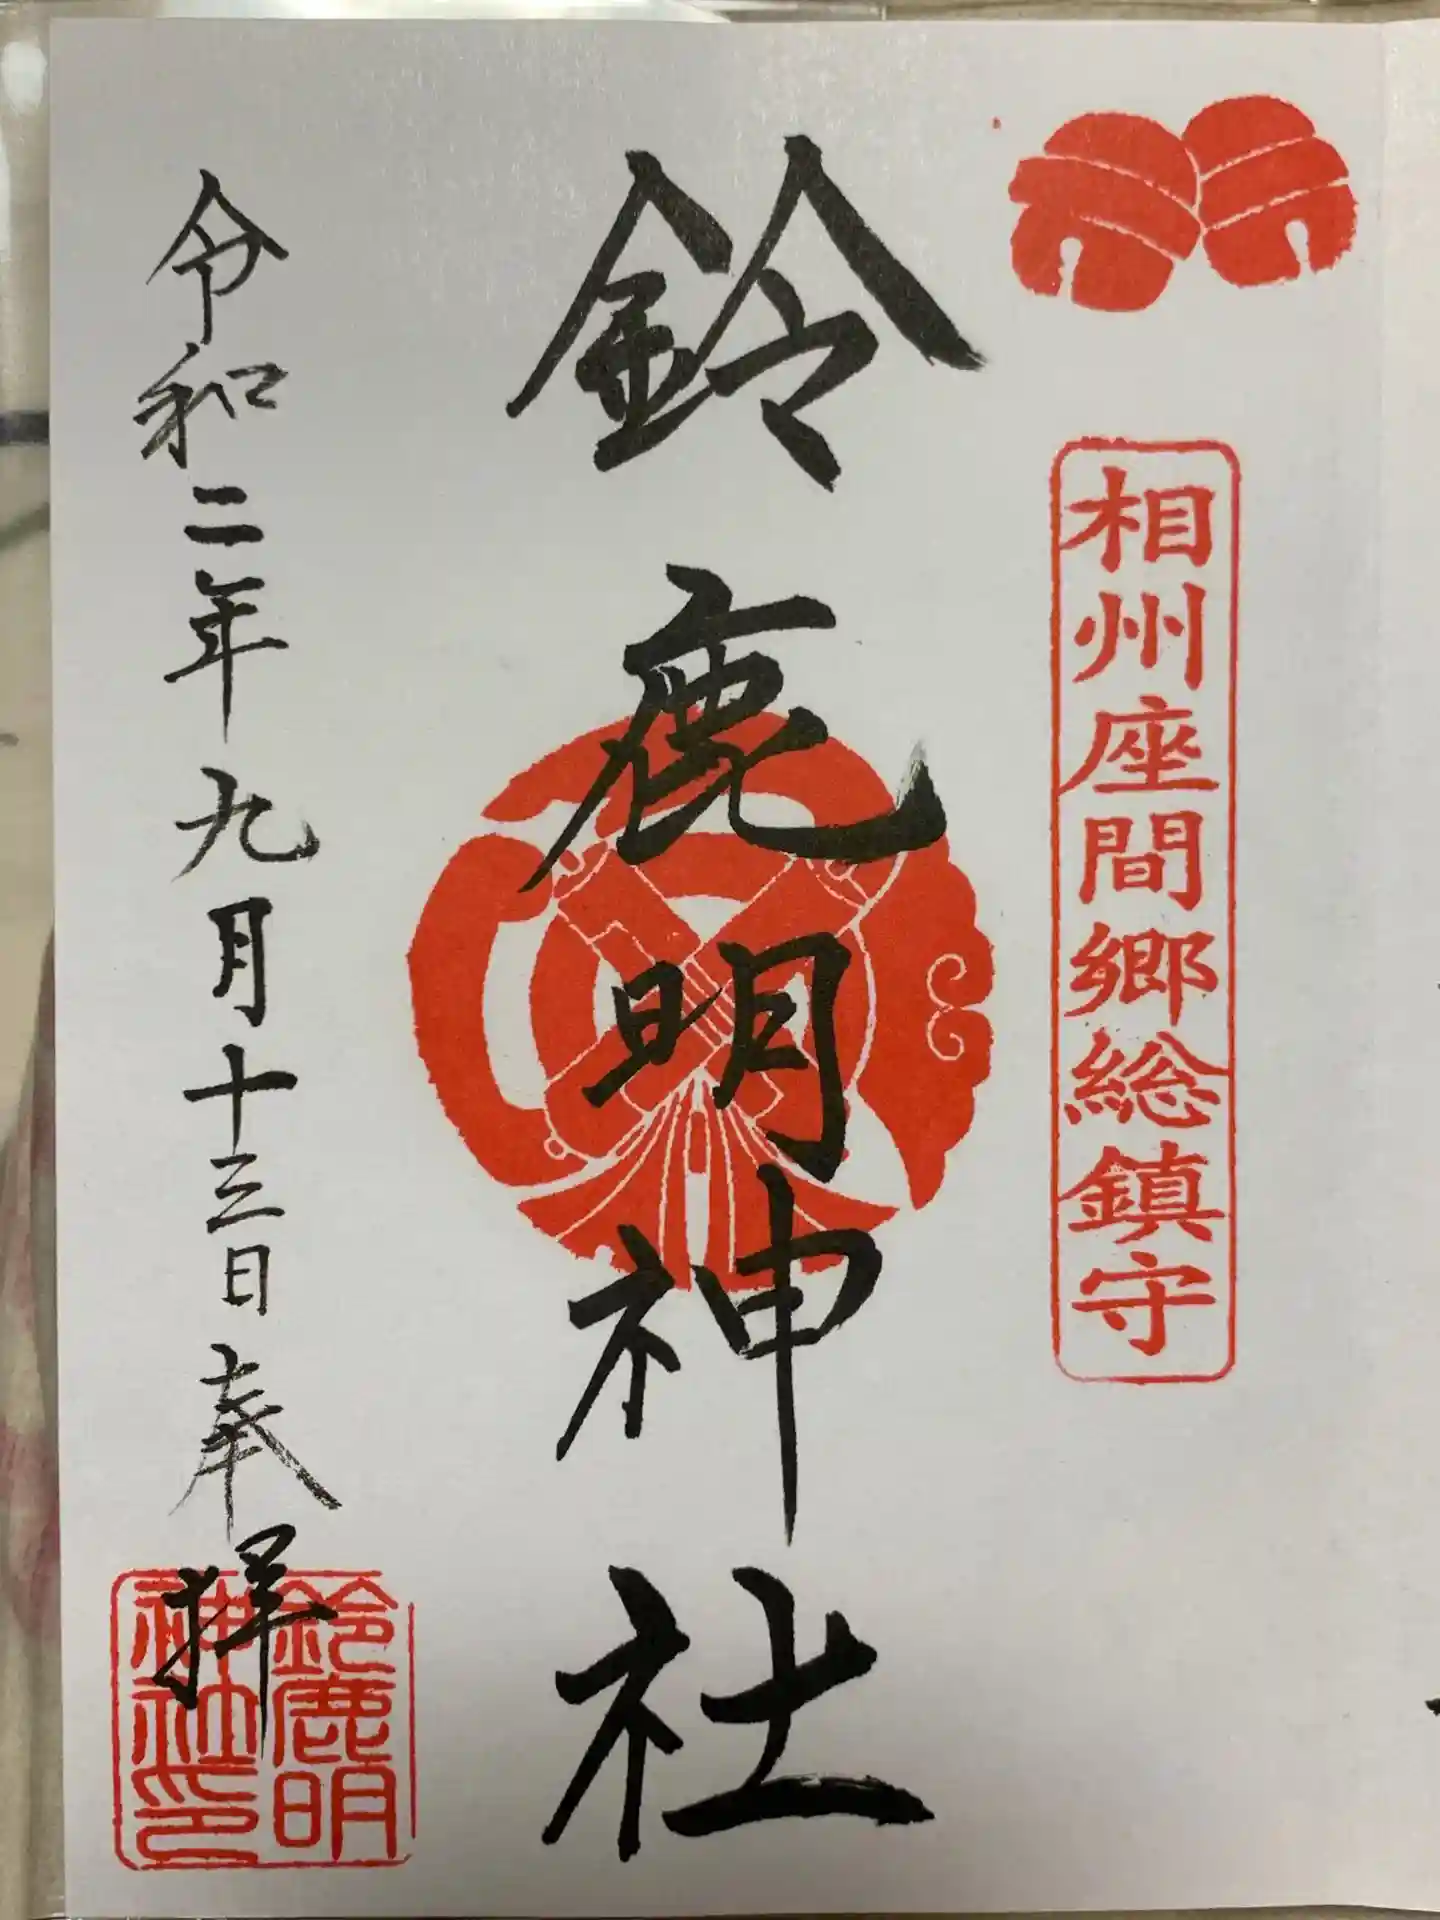 相州座間郷総鎮守
鈴鹿明神社
令和二年九月十三日奉拝
鈴鹿明
神社印